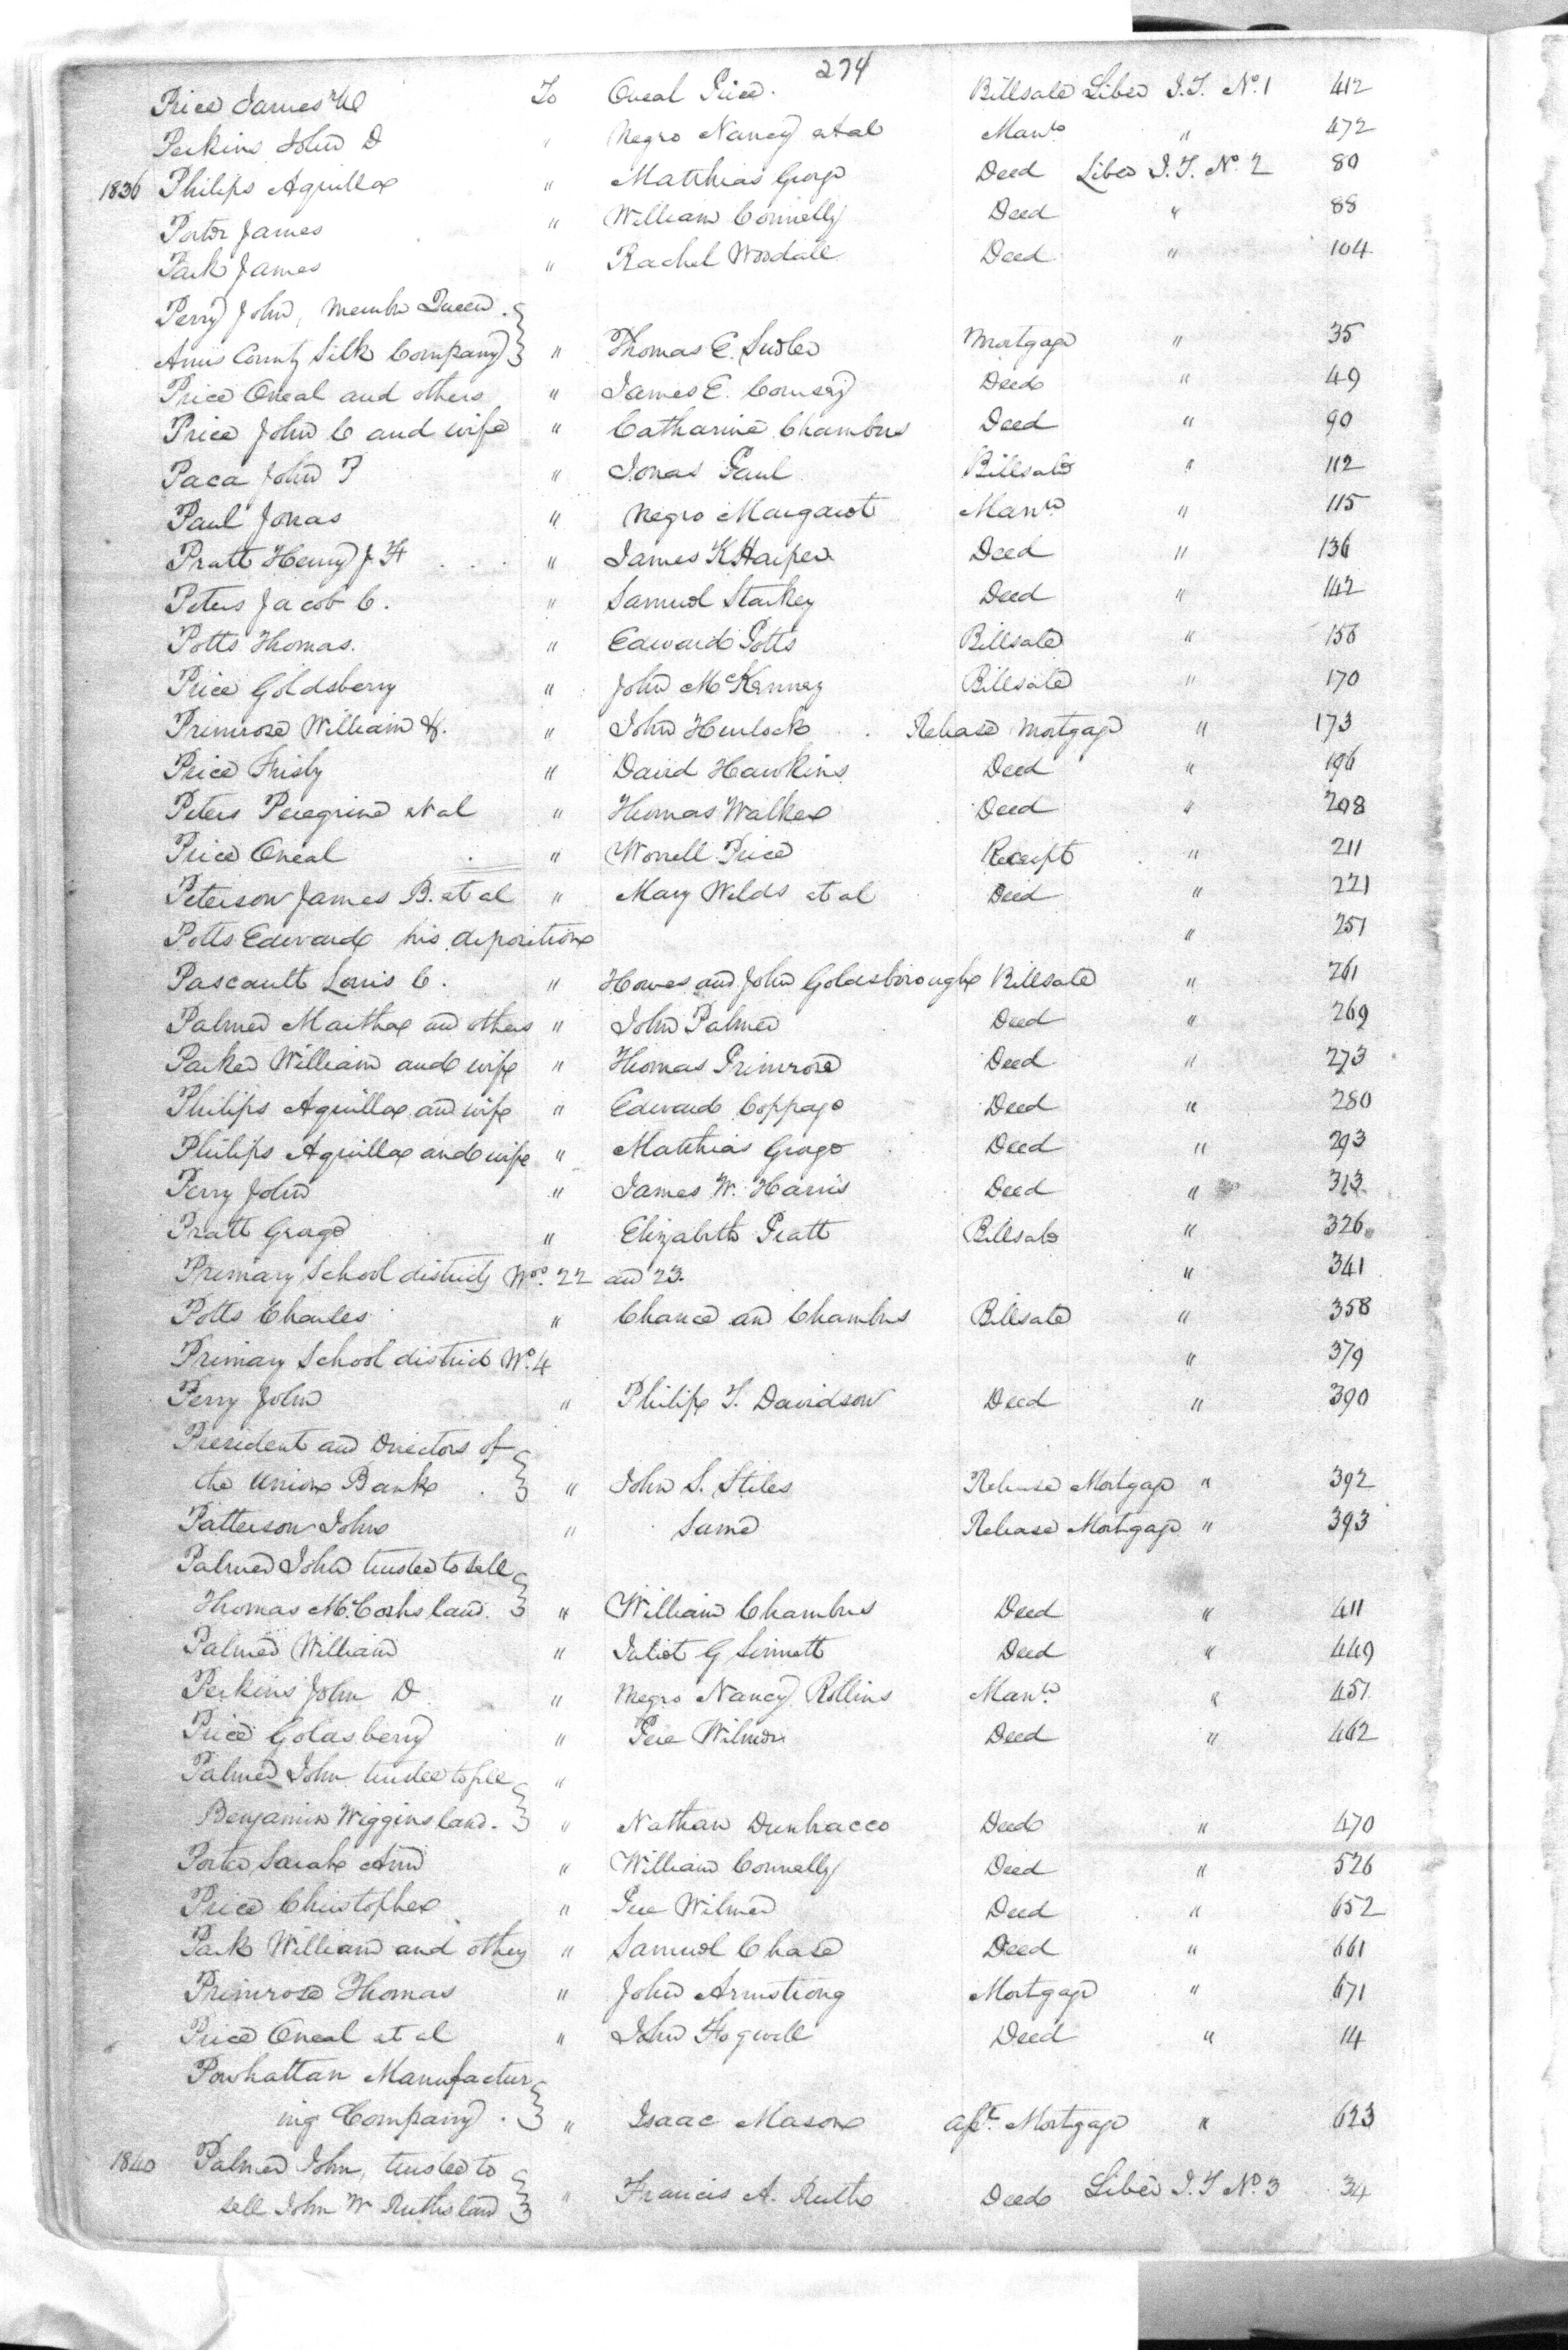 274
Price James W To Oneal Price. Billsale Liber I.T. No. 1 412
Perkins John D " Negro Nancy et al Mann " 472
1836 Philips Aquilla " Matthias George Deed Liber I.T. No. 2 80
Porter James " William Connelly Deed " 88
Park James " Rachel Woodall Deed " 104
Perry John, Member Queen
Anns County Silk Company " Thomas C. Sudler Mortgage " 35
Price Oneal and others " James E. Comegy Deed " 49
Price John C and wife " Catharine Chambers Deed " 90
Paca John P " Jonas Paul Billsale " 112
Paul Jonas " Negro Margaret Mann " 115
Pratt Henry J. F " James K Harper Deed " 136
Peters Jacob C. " Samuel Starkey Deed " 142
Potts Thomas. " Edward Potts Billsale " 156
Price Goldsberry " John McKenney Billsale " 170
Primrose William H. " John Hurlock Release Mortgage " 173
Price Frisby " David Hawkins Deed " 196
Peters Peregrine et al " Thomas Walker Deed " 208
Price Oneal " Worrell Price Receipt " 211
Peterson James B. et al " Mary Wilds et al Deed " 221
Potts Edward his deposition " 251
Pascault Louis C. " Howes and John Goldsborough Billsale " 261
Palmer Martha and others " John Palmer Deed " 269
Parker William and wife " Thomas Primrose Deed " 273
Philips Aquilla and wife " Edward Coppage Deed " 280
Philips Aquilla and wife " Matthias George Deed " 293
Perry John " James W. Harris Deed " 313
Pratt George " Elizabeth Pratt Billsale " 326
Primary School districts Nos. 22 and 23. " 341
Potts Charles " Chance and Chambers Billsale " 358
Primary School district No. 4 " 379
Perry John " Philip T. Davidson Deed " 390
President and Directors of
the Union Bank " John S. Stiles Release Mortgage " 392
Patterson John " Same Release Mortgage " 393
Palmer John trustee to sell
Thomas McCoshs land. " William Chambers Deed " 411
Palmer William " Juliet G Sinnott Deed " 449
Perkins John D " Negro Nancy Rollins Mann " 451
Price Goldsberry " Pere Wilmer Deed " 462
Palmer John trustee to sell "
Benjamin Wiggins land. " Nathan Dunbracco Deed " 470
Porter Sarah Ann " William Connelly Deed " 526
Price Christopher " Pere Wilmer Deed " 652
Park William and others " Samuel Chase Deed " 661
Primrose Thomas " John Armstrong Mortgage " 671
Price Oneal et al " John Fogwell Deed " 14
Powhattan Manufactur
ing Company. " Isaac Mason Mortgage " 623
1840 Palmer John, trustee to
sell John W Ruths land " Francis A. Ruth Deed Liber I.T No. 3 34